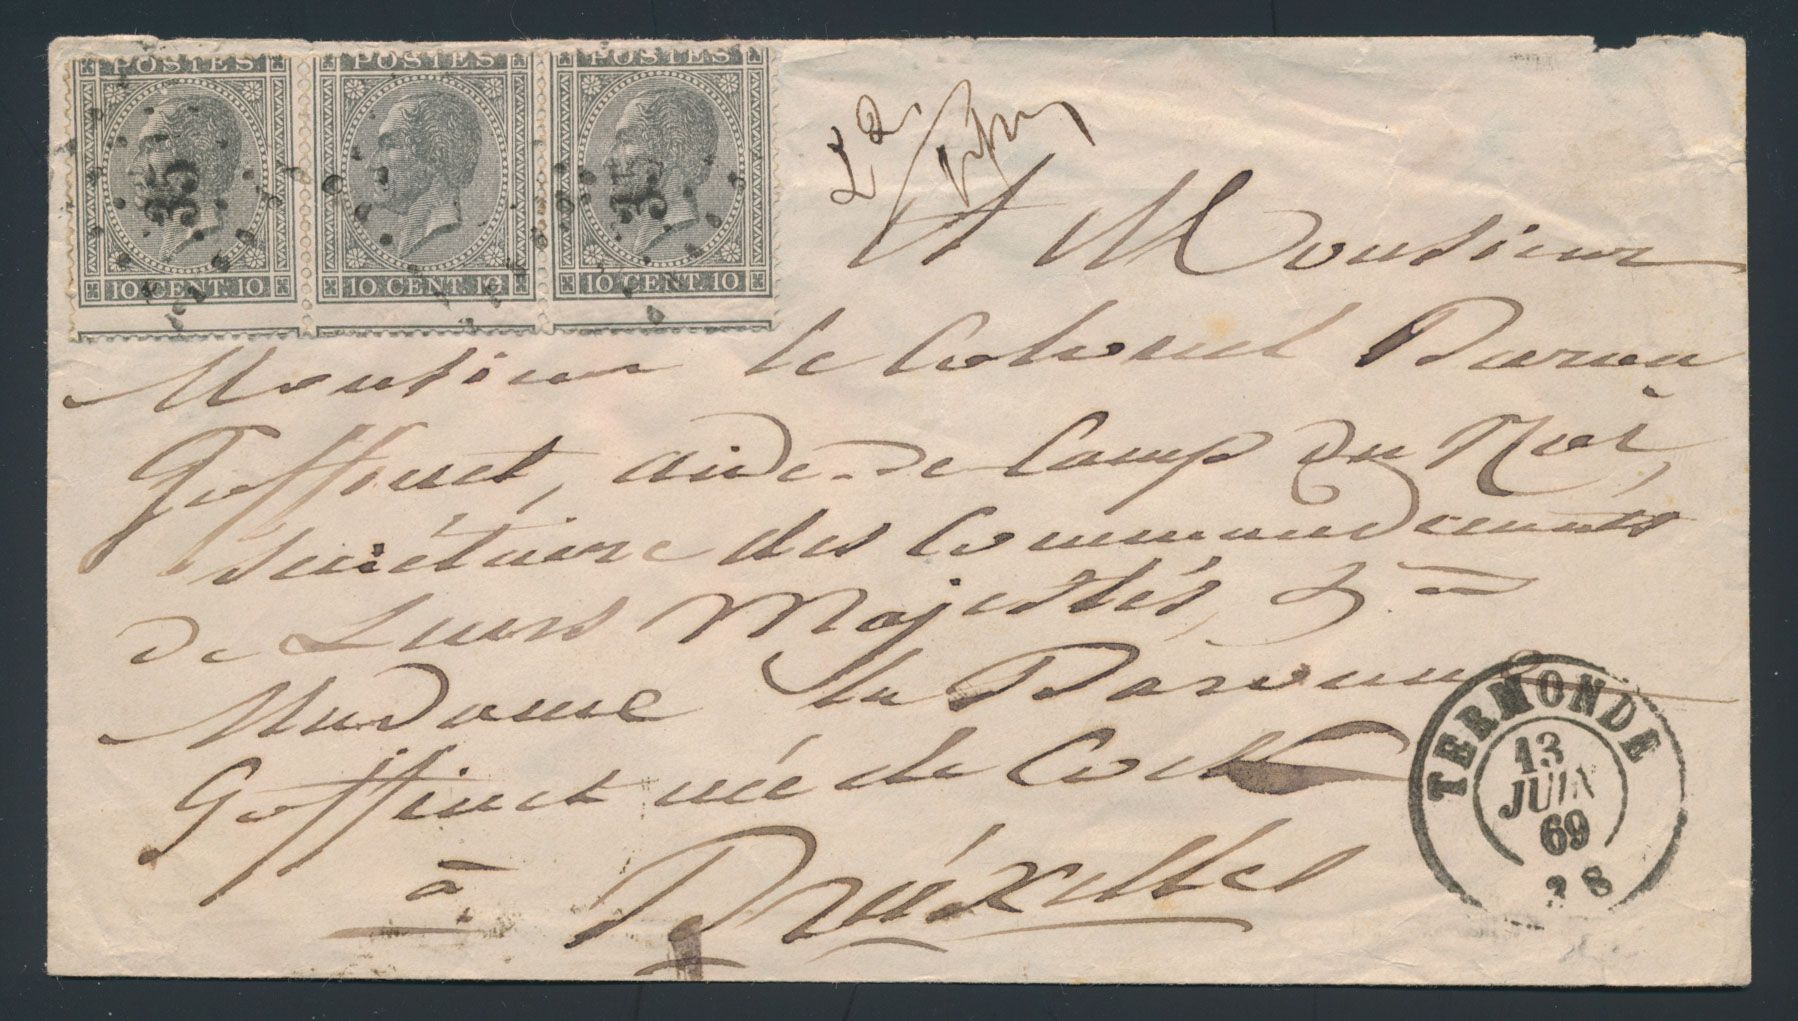 POSTES POSTES POSTES
35 35
10 CENT. 10 10 CENT. 10 10 CENT. 10
A Monsieur
Monsieur le Colonel Baron
Goffinet, aide-de-Camp du Roi,
secrétaire des Commandements
de Leurs Majestés, &a
Madame la Baronne
Goffinet née de Cock
à Bruxelles
TERMONDE
13
JUIN
69